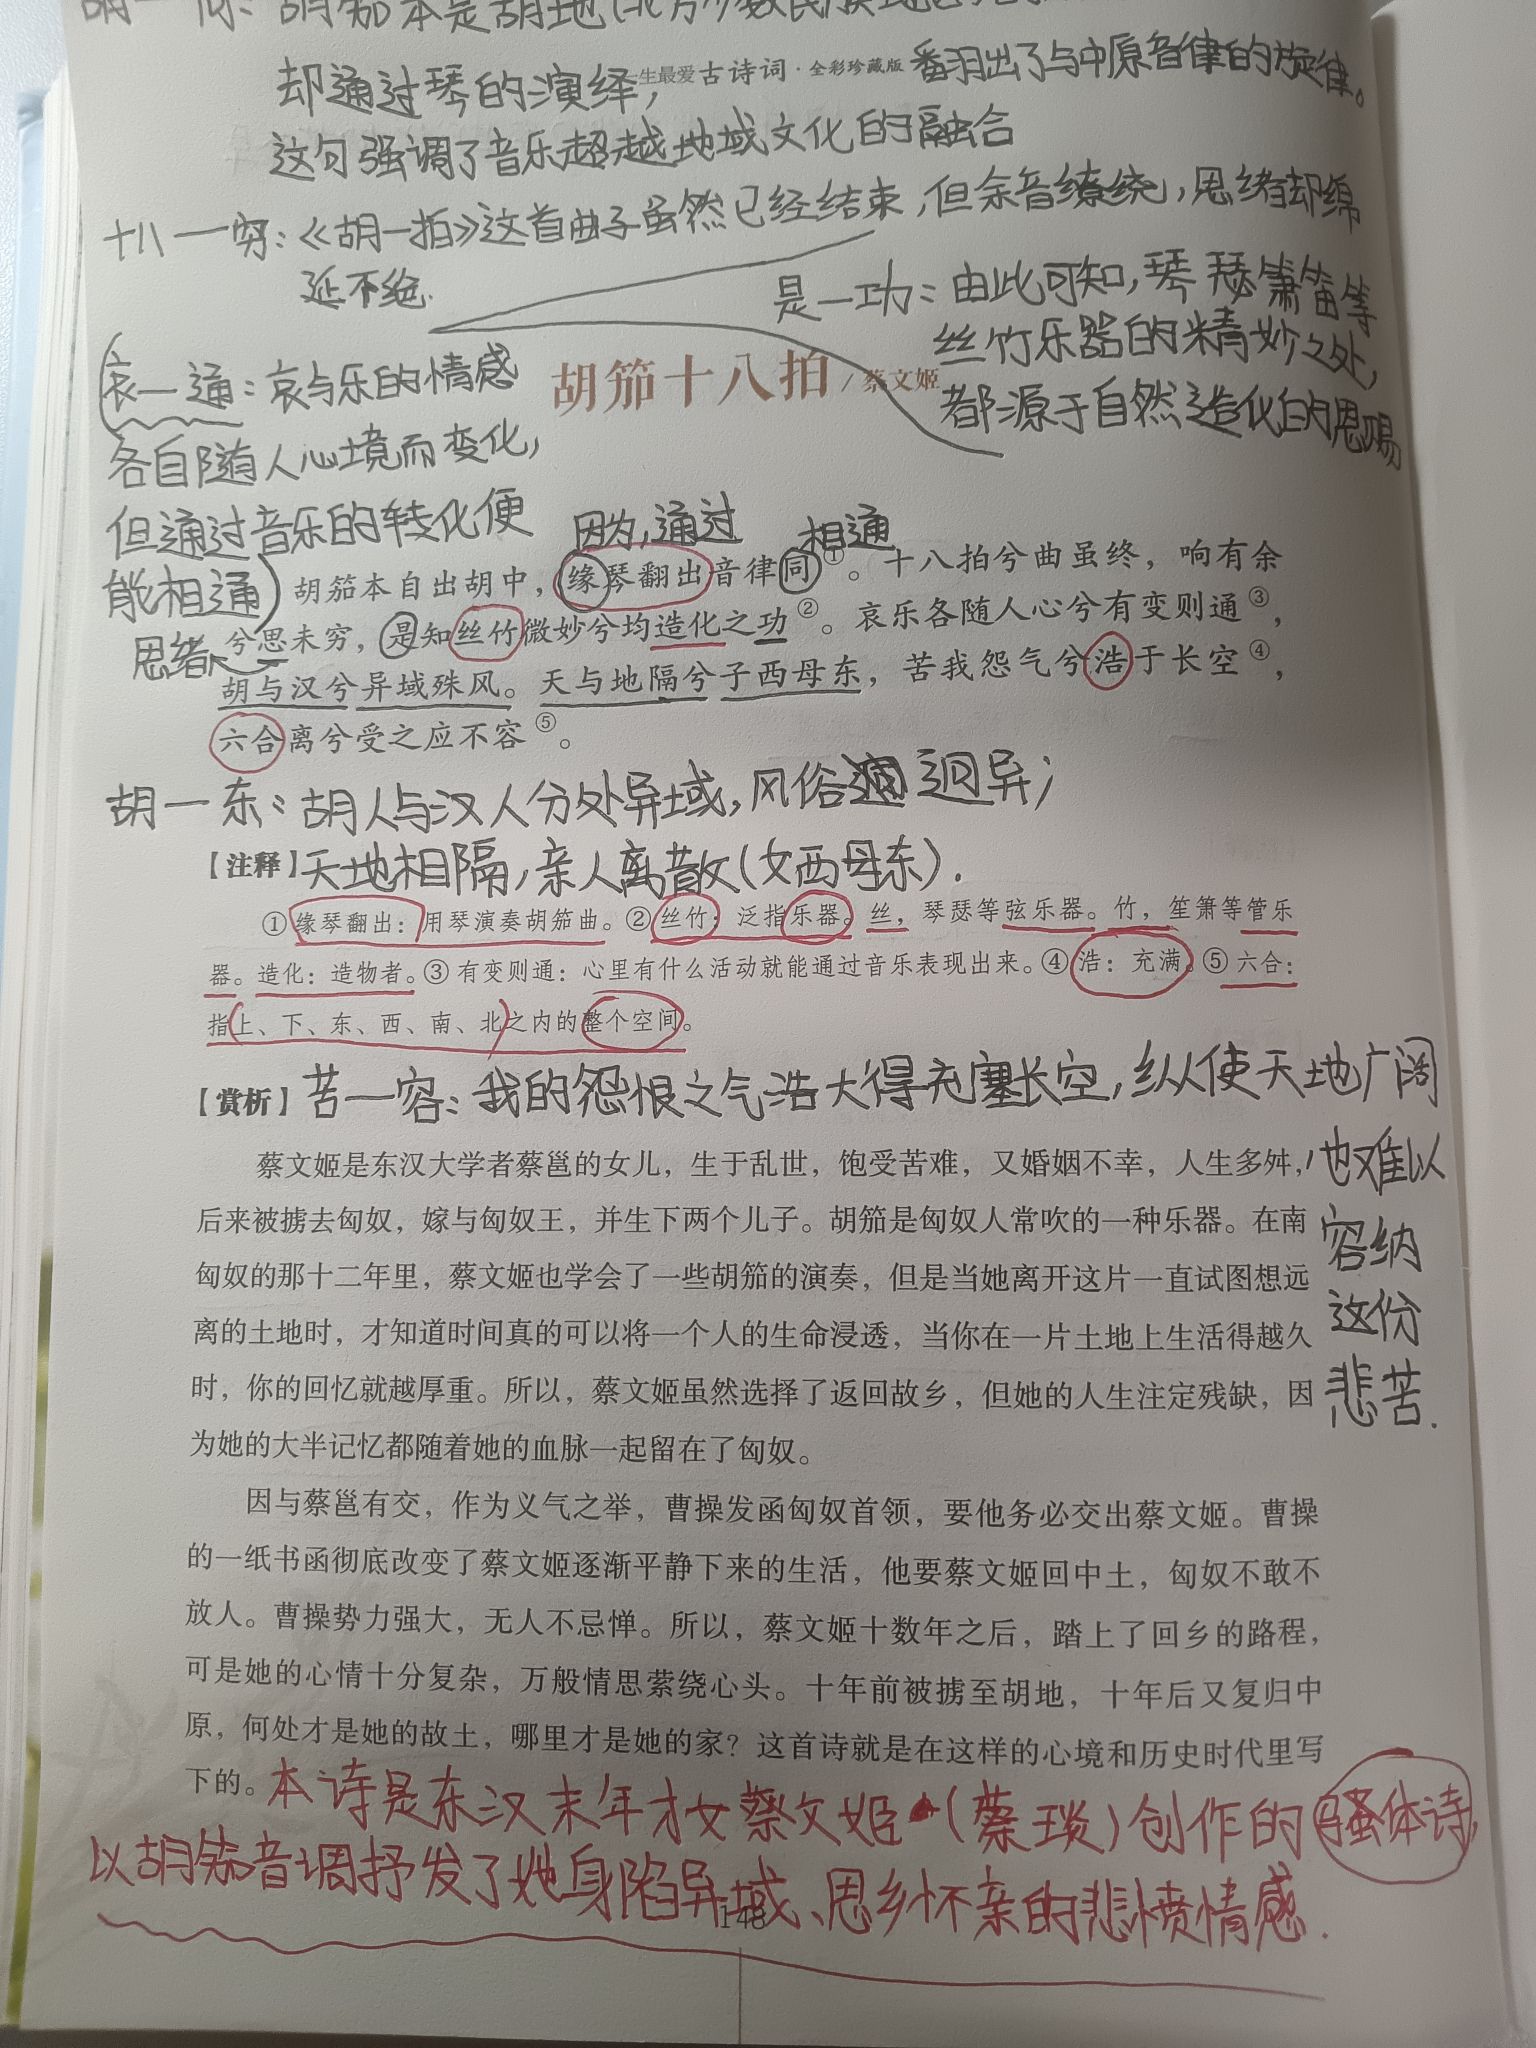 胡一同：胡笳本是胡地(北方少数民族
却通过琴的演绎，
一生最爱古诗词·全彩珍藏版
翻出了与中原音律的旋律。
这句强调了音乐超越地域文化的融合
十八一穷：《胡一拍》这首曲子虽然已经结束，但余音缭绕，思绪却绵
延不绝.
是一功：由此可知，琴瑟箫笛等
丝竹乐器的精妙之处，
都源于自然造化的恩赐
胡笳十八拍/蔡文姬
(哀一通：哀与乐的情感
各自随人心境而变化，
但通过音乐的转化便
能相通)
因为，通过 相通
胡笳本自出胡中，缘琴翻出音律同①。十八拍兮曲虽终，响有余
思绪
兮思未穷，是知丝竹微妙兮均造化之功②。哀乐各随人心兮有变则通③，
胡与汉兮异域殊风。天与地隔兮子西母东，苦我怨气兮浩于长空④，
六合离兮受之应不容⑤。
胡一东：胡人与汉人分处异域，风俗迥异；
天地相隔，亲人离散(女西母东).
【注释】
①缘琴翻出：用琴演奏胡笳曲。②丝竹：泛指乐器。丝，琴瑟等弦乐器。竹，笙箫等管乐
器。造化：造物者。③有变则通：心里有什么活动就能通过音乐表现出来。④浩：充满。⑤六合：
指上、下、东、西、南、北之内的整个空间。
【赏析】
苦一容：我的怨恨之气浩大得充塞长空，纵使天地广阔
也难以
容纳
这份
悲苦.
蔡文姬是东汉大学者蔡邕的女儿，生于乱世，饱受苦难，又婚姻不幸，人生多舛，
后来被掳去匈奴，嫁与匈奴王，并生下两个儿子。胡笳是匈奴人常吹的一种乐器。在南
匈奴的那十二年里，蔡文姬也学会了一些胡笳的演奏，但是当她离开这片一直试图想远
离的土地时，才知道时间真的可以将一个人的生命浸透，当你在一片土地上生活得越久
时，你的回忆就越厚重。所以，蔡文姬虽然选择了返回故乡，但她的人生注定残缺，因
为她的大半记忆都随着她的血脉一起留在了匈奴。
因与蔡邕有交，作为义气之举，曹操发函匈奴首领，要他务必交出蔡文姬。曹操
的一纸书函彻底改变了蔡文姬逐渐平静下来的生活，他要蔡文姬回中土，匈奴不敢不
放人。曹操势力强大，无人不忌惮。所以，蔡文姬十数年之后，踏上了回乡的路程，
可是她的心情十分复杂，万般情思萦绕心头。十年前被掳至胡地，十年后又复归中
原，何处才是她的故土，哪里才是她的家？这首诗就是在这样的心境和历史时代里写
下的。
本诗是东汉末年才女蔡文姬(蔡琰)创作的骚体诗，
以胡笳音调抒发了她身陷异域、思乡怀亲的悲愤情感.
148